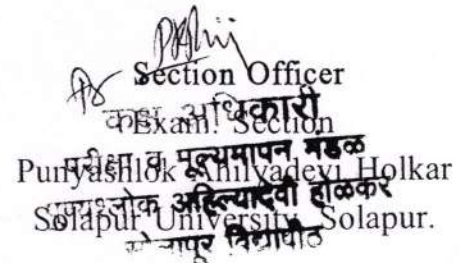 Section Officer
कक्ष अधिकारी
Exam. Section
परीक्षा व मूल्यमापन मंडळ
Punyashlok Ahilyadevi Holkar
पुण्यश्लोक अहिल्यादेवी होळकर
Solapur University, Solapur.
सोलापूर विद्यापीठ